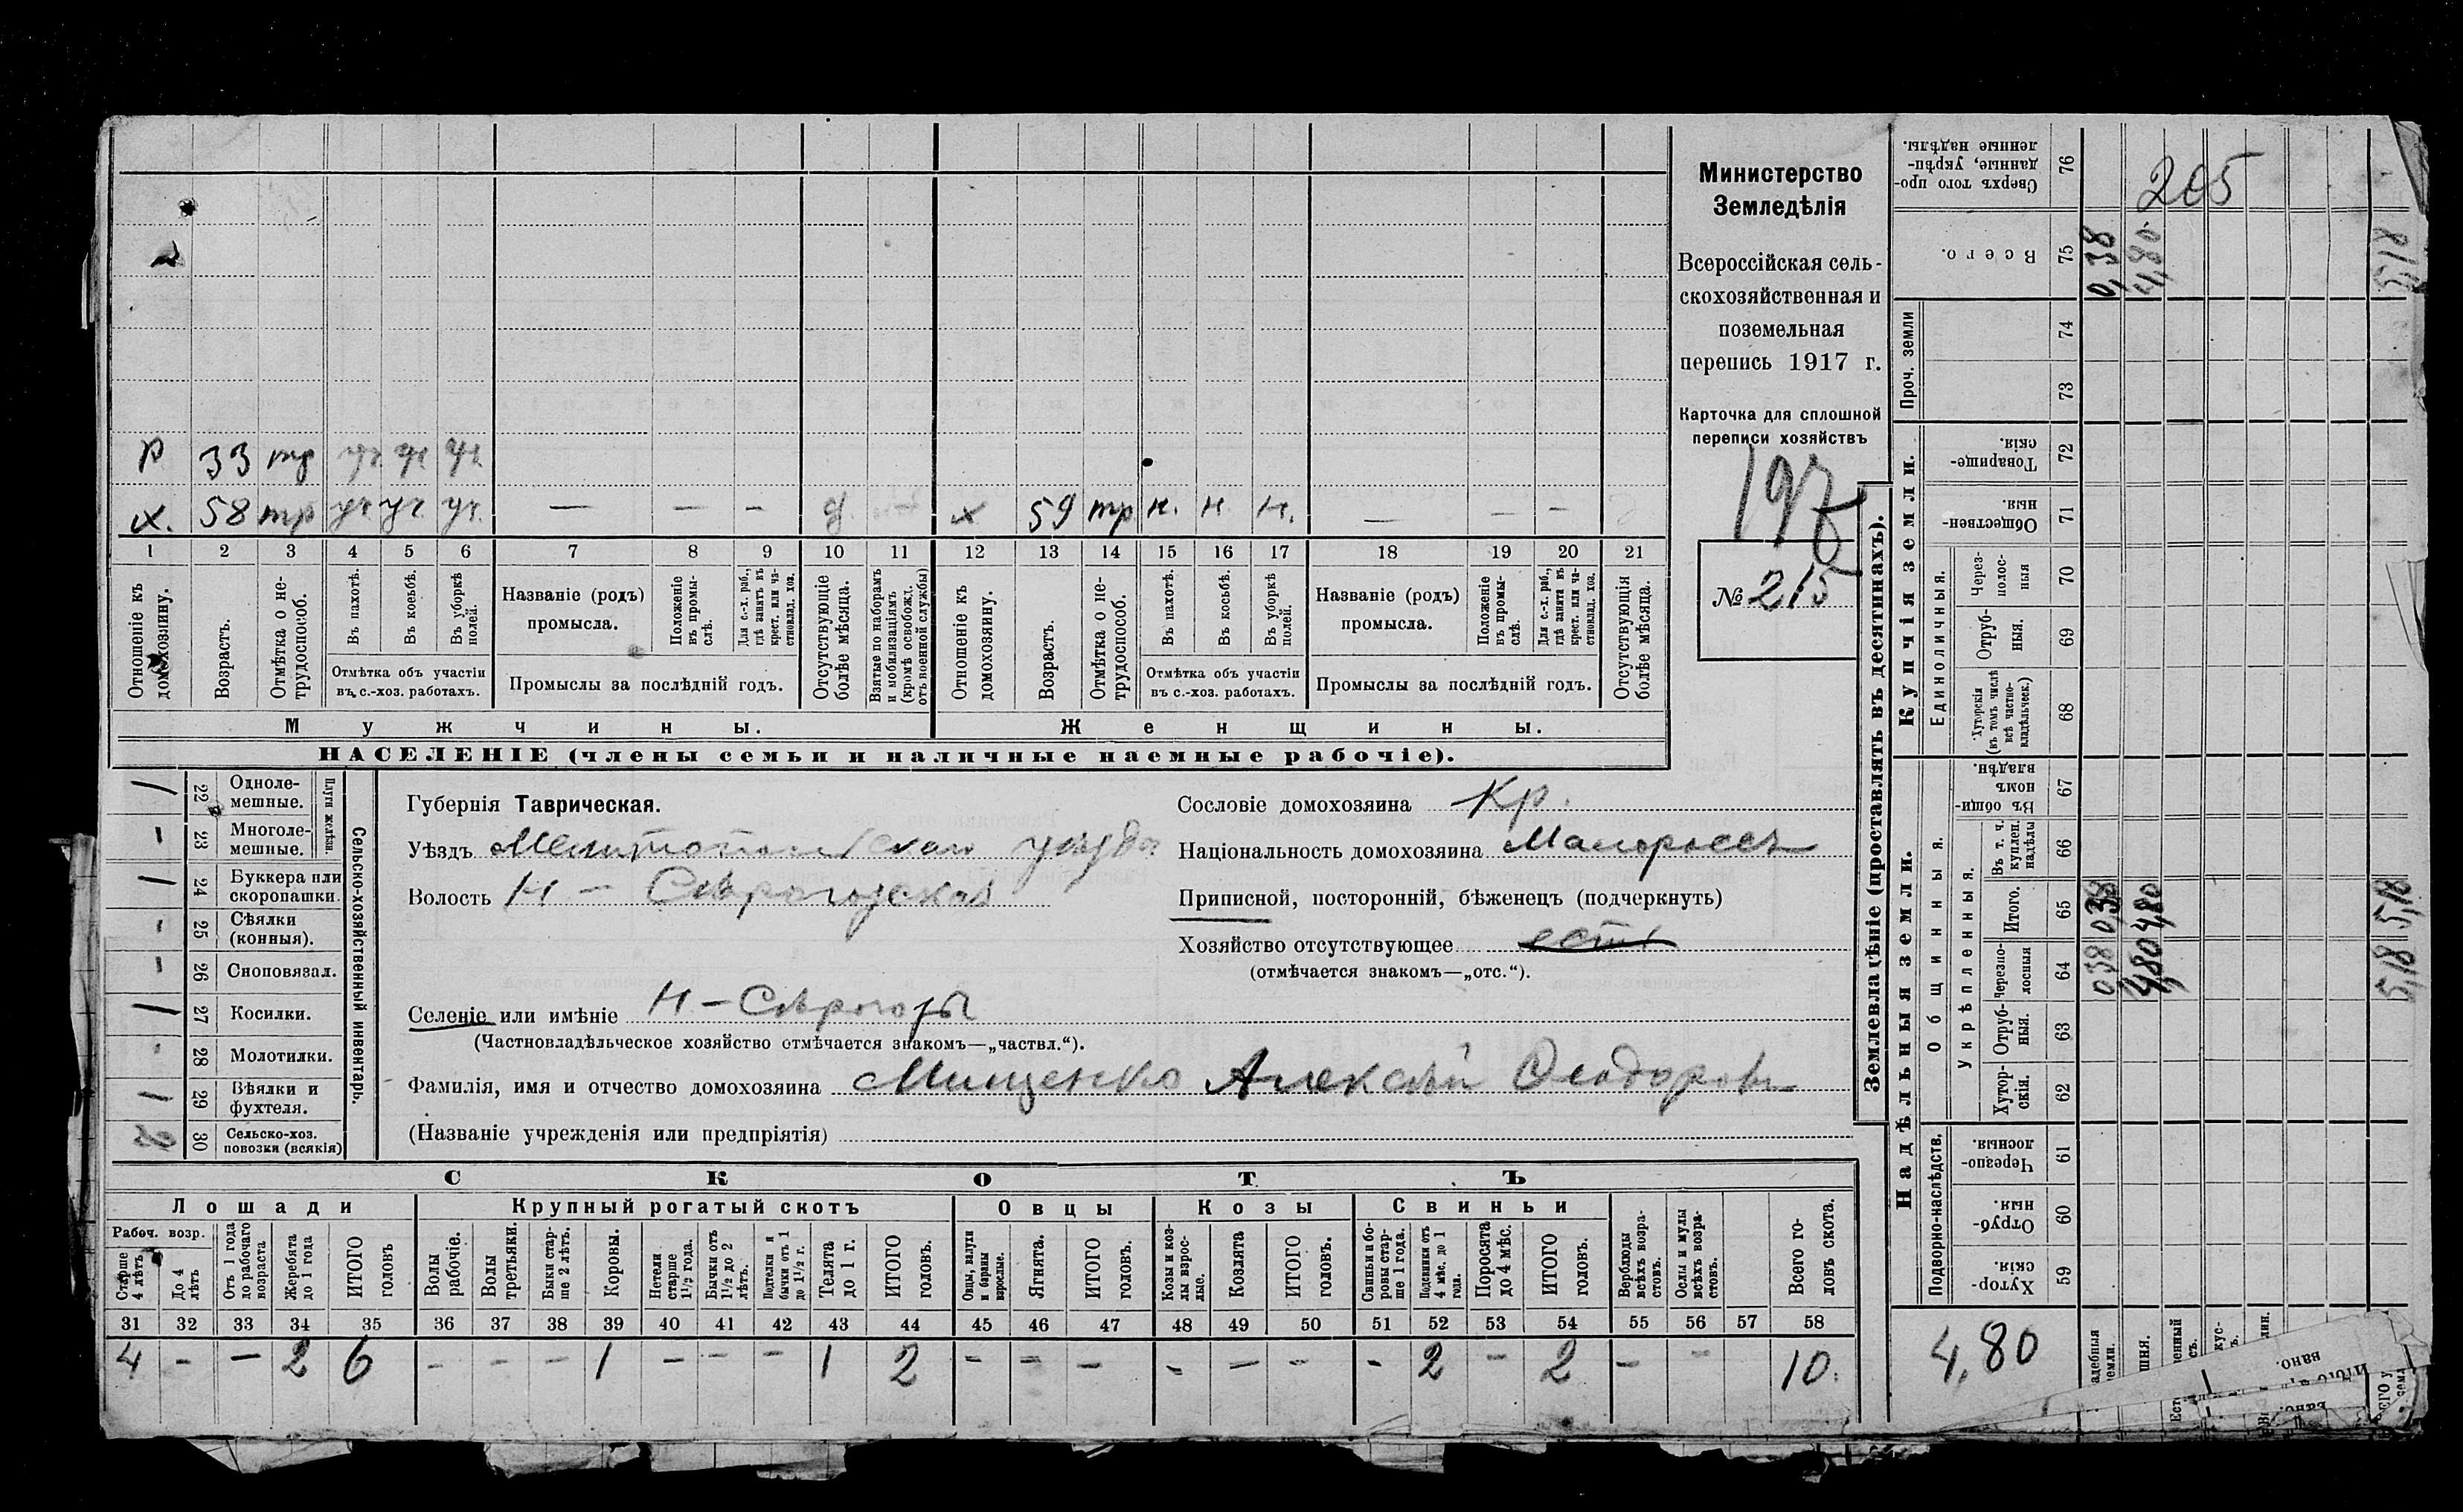 Министерство
Земледѣлія
Всероссійская сель-
скохозяйственная и
поземельная
перепись 1917 г.
Карточка для сплошной
переписи хозяйствъ
197
№ 215
р 33 тр уч. уч. уч.
х. 58 тр уч. уч. уч. — — — х 59 тр н. н. н. — — —
1 2 3 4 5 6 7 8 9 10 11 12 13 14 15 16 17 18 19 20 21
Отношеніе къ домохозяину.
Возрастъ.
Отмѣтка о не-трудоспособ.
Въ пахотѣ.
Въ косьбѣ.
Въ уборкѣ полей.
Отмѣтка объ участіи
въ с.-хоз. работахъ.
Названіе (родъ)
промысла.
Положеніе въ промы-слѣ.
Для с.-х. раб., гдѣ занятъ въ крест. или ча-стновлад. хоз.
Промыслы за послѣдній годъ.
Отсутствующіе болѣе мѣсяца.
Взятые по наборамъ и мобилизаціямъ (кромѣ освобожд. отъ военной службы)
Отношеніе къ домохозяину.
Возрастъ.
Отмѣтка о не-трудоспособ.
Въ пахотѣ.
Въ косьбѣ.
Въ уборкѣ полей.
Отмѣтка объ участіи
въ с.-хоз. работахъ.
Названіе (родъ)
промысла.
Положеніе въ промы-слѣ.
Для с.-х. раб., гдѣ занята въ крест. или ча-стновлад. хоз.
Промыслы за послѣдній годъ.
Отсутствующія болѣе мѣсяца.
Мужчины.
Женщины.
НАСЕЛЕНІЕ (члены семьи и наличные наемные рабочіе).
Сельско-хозяйственный инвентарь.
Плуги желѣзн.
/ 22 Одноле-мешные.
- 23 Многоле-мешные.
/ 24 Буккера или скоропашки.
- 25 Сѣялки (конныя).
- 26 Сноповязал.
/ 27 Косилки.
- 28 Молотилки.
/ 29 Вѣялки и фухтеля.
2 30 Сельско-хоз. повозки (всякія)
Губернія Таврическая.
Уѣздъ Мелитопольскаго уѣзда
Волость Н-Сѣрогозская
Сословіе домохозяина Кр.
Національность домохозяина Малороссъ
Приписной, посторонній, бѣженецъ (подчеркнуть)
Хозяйство отсутствующее
(отмѣчается знакомъ—„отс.“).
Селеніе или имѣніе Н-Сѣрогозы
(Частновладѣльческое хозяйство отмѣчается знакомъ—„частвл.“).
Фамилія, имя и отчество домохозяина Мищенко Алексѣй Ѳеодоровъ
(Названіе учрежденія или предпріятія)
СКОТЪ
Лошади
Крупный рогатый скотъ
Овцы
Козы
Свиньи
Рабоч. возр.
Старше 4 лѣтъ
До 4 лѣтъ
Отъ 1 года до рабочаго возраста
Жеребята до 1 года
ИТОГО головъ
Волы рабочіе.
Волы третьяки.
Быки стар-ше 2 лѣтъ.
Коровы.
Нетели старше 1½ года.
Бычки отъ 1½ до 2 лѣтъ.
Подтелки и бычки отъ 1 до 1½ г.
Телята до 1 г.
ИТОГО головъ.
Овцы, валухи и бараны взрослые.
Ягнята.
ИТОГО головъ.
Козы и коз-лы взрос-лые.
Козлята
ИТОГО головъ.
Свиньи и бо-ровы стар-ше 1 года.
Подсвинки отъ 4 мѣс. до 1 года.
Поросята до 4 мѣс.
ИТОГО головъ.
Верблюды всѣхъ возра-стовъ.
Ослы и мулы всѣхъ возра-стовъ.
Всего го-ловъ скота.
31 32 33 34 35 36 37 38 39 40 41 42 43 44 45 46 47 48 49 50 51 52 53 54 55 56 57 58
4 - - 2 6 - - - 1 - - - 1 2 - - - - - - - 2 - 2 - - 10.
Землевладѣніе (проставлять въ десятинахъ).
Купчія земли.
Надѣльныя земли.
Сверхъ того про-данные, укрѣп-ленные надѣлы. 76
205
Всего. 75 0,38 4,80 5,18
Проч. земли 74
73
Товарище-скія. 72
Обществен-ныя. 71
Единоличныя.
Через-полос-ныя 70
Отруб-ныя. 69
Хуторскія (въ томъ числѣ всѣ частно-владѣльческ.) 68
Общинныя.
Въ общи-номъ владѣн. 67
Укрѣпленныя.
Въ т. ч. куплен. надѣлы 66
Итого. 65 0,38 4,80 5,18
Черезпо-лосныя 64 0,38 4,80 5,18
Отруб-ныя. 63
Хутор-скія. 62
Подворно-наслѣдств.
Черезпо-лосныя. 61
Отруб-ныя. 60
Хутор-скія. 59
4,80